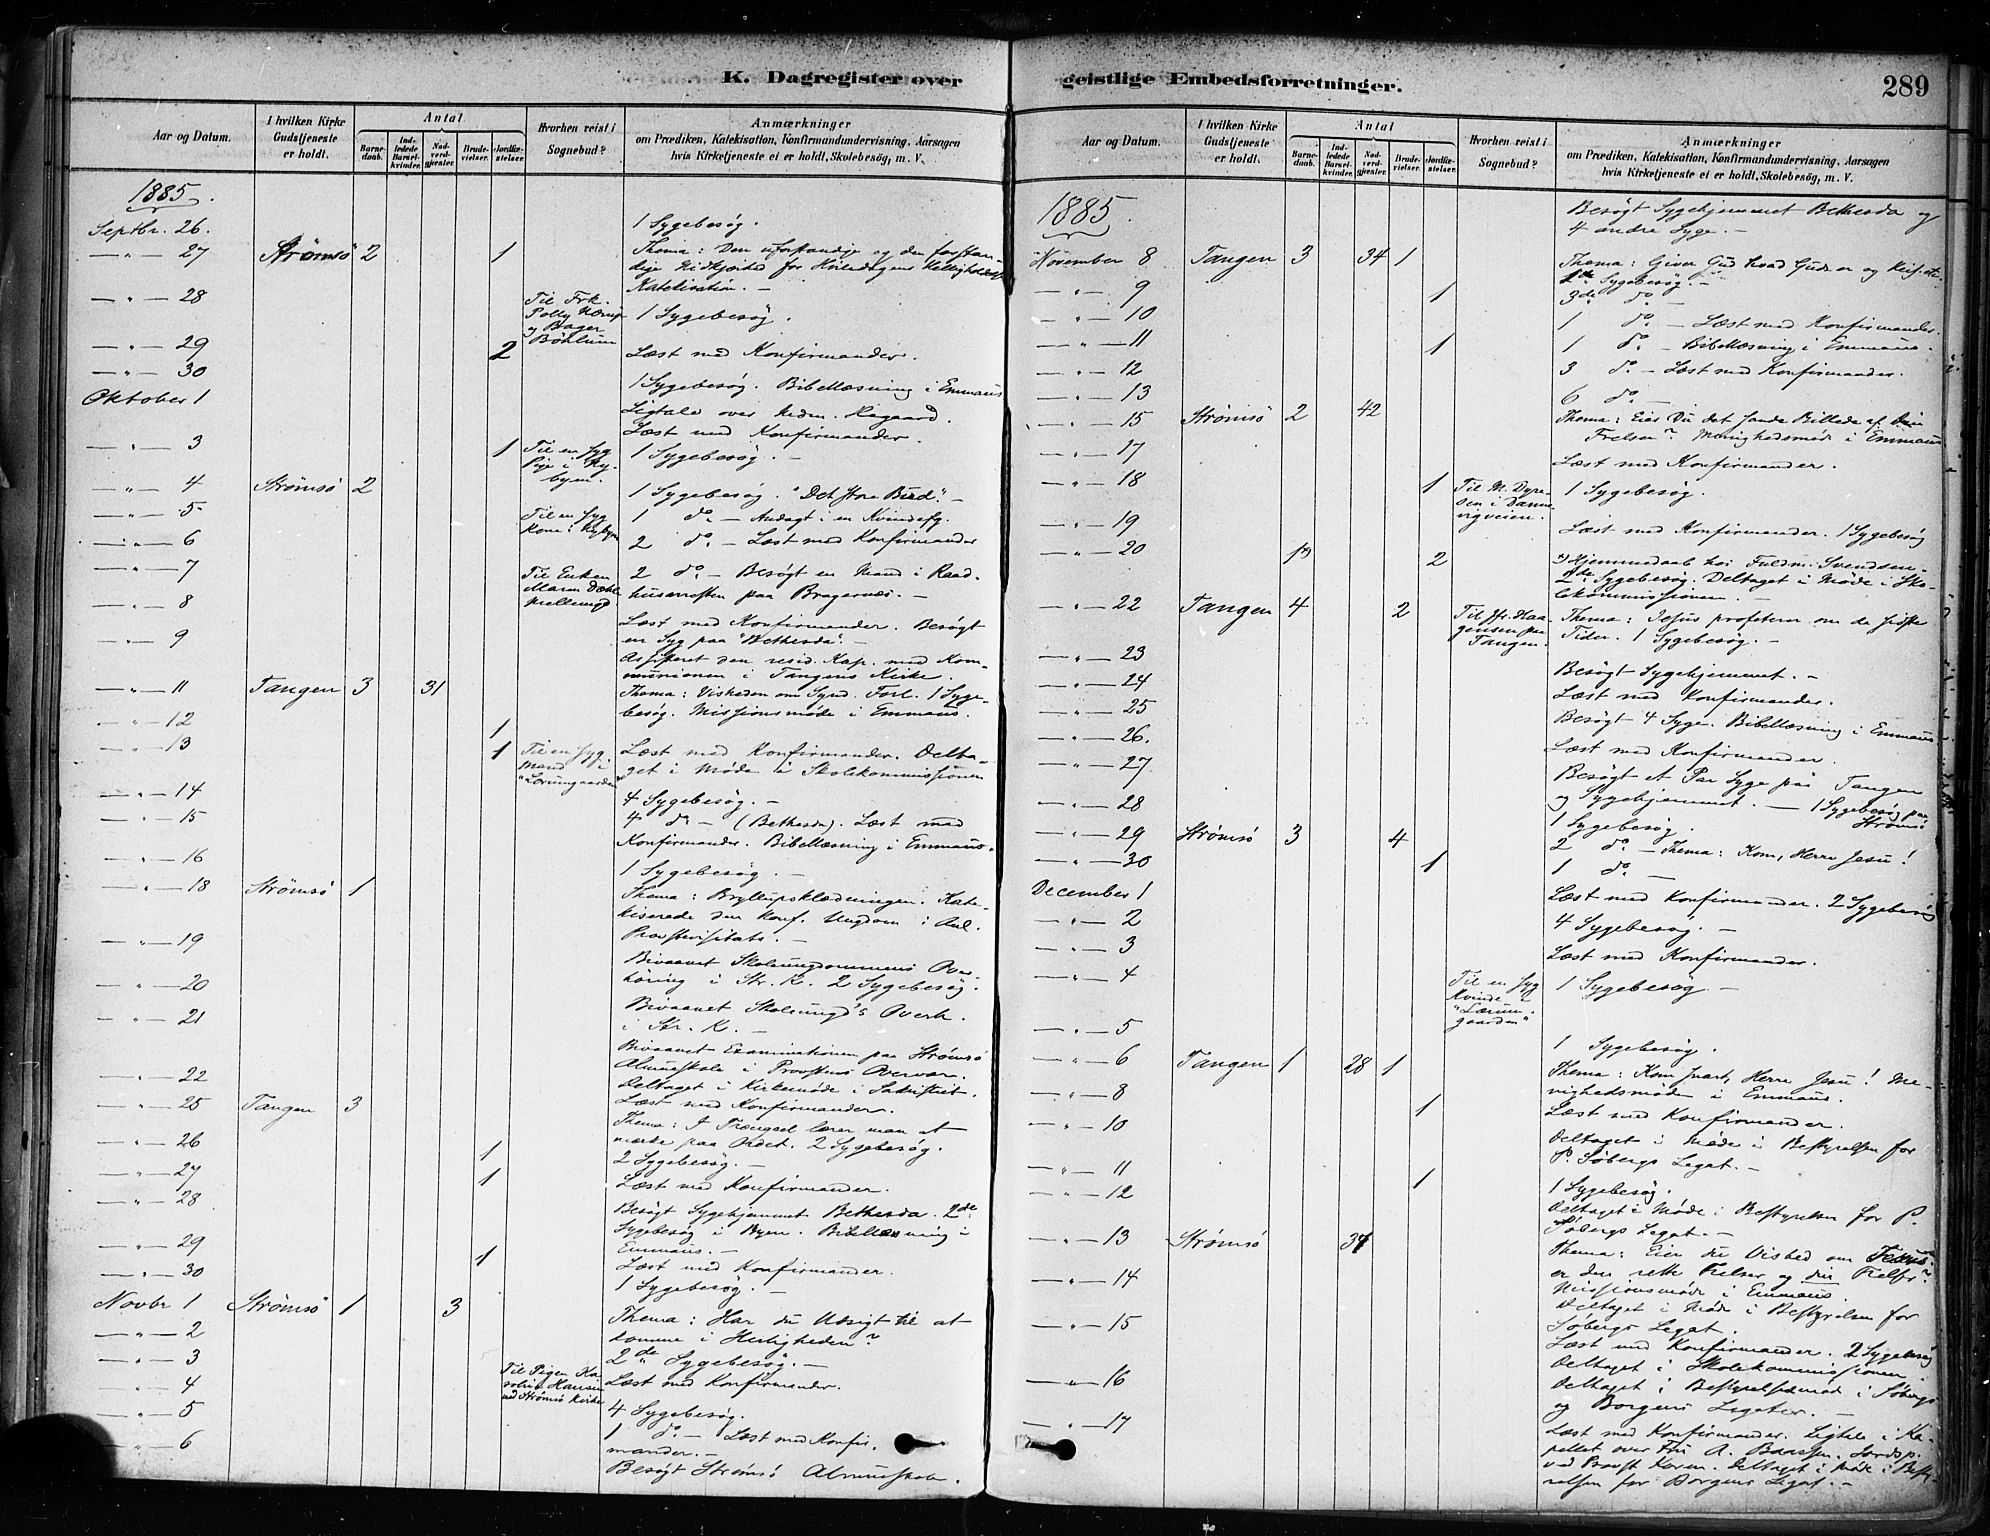 K. Dagregister over
Aar og Datum.
I hvilken Kirke Gudstjeneste er holdt.
Antal
Barne-daab.
Ind-ledede Barsel-kvinder.
Nad-verd-gjester.
Brude-vielser.
Jordfæ-stelser.
Hvorhen reist i Sognebud?
Anmærkninger
om Prædiken, Katekisation, Konfirmandundervisning, Aarsagen
hvis Kirketjeneste ei er holdt, Skolebesøg, m. V.
1885.
Septbr. 26.
1 Sygebesøg.
— " — 27 Strømsø 2 1
Thema: Den uforstandige og den forstan-
dige Nidkjærhed for Hviledagens Helligholdelse
Katekisation. —
— " — 28
Til Frk.
Polly
og Bager
Bøhlum
1 Sygebesøg.
— " — 29 2
Læst med Konfirmander.
— " — 30
1 Sygebesøg. Bibellæsning i Emmaus
Oktober 1
Ligtale over
Læst med Konfirmander.
— " — 3 1
Til en syg
Pige i Ny-
byen.
1 Sygebesøg. —
— " — 4 Strømsø 2
1 Sygebesøg. "Det store Bud". —
— " — 5
Til en syg
Kone i Nybyen
1 do. — Andagt i en Kvindefg.
— " — 6
2 do. — Læst med Konfirmander
— " — 7
Til Enken
Maren
2 do. — Besøgt en Mand i Raad-
husarresten paa Bragernæs. —
— " — 8
Læst med Konfirmander. Besøgt
— " — 9
en Syg paa "Bethesda". —
Assisteret den resid. Kap. med Kom-
munionen i Tangens Kirke.
— " — 11 Tangen 3 31
Thema: Visheden om Synd. Forl. 1 Syge-
besøg. Missionsmøde i Emmaus.
— " — 12 1
— " — 13 1
Til en syg
Mand i
Læst med Konfirmander. Delta-
get i Møde i Skolekommissionen
— " — 14
4 Sygebesøg. —
— " — 15
4 do — (Bethesda). Læst med
Konfirmander. Bibellæsning i Emmaus.
— " — 16
1 Sygebesøg. —
— " — 18 Strømsø 1
Thema: Bryllupsklædningen. Kate-
kiserede den konf. Ungdom i Anl.
Provstevisitats. —
— " — 19
Bivaanet Skoleungdommens Over-
høring i Str. K. 2 Sygebesøg.
— " — 20
Bivaanet Skoleungd's Overh.
— " — 21
i Str. K. —
Bivaanet Examinationen paa Strømsø
Almueskole i Provstens Overvær.
— " — 22
Deltaget i Kirkemøde i Sakristiet.
— " — 25 Tangen 3
Læst med Konfirmander.
Thema: I Trængsel lærer man at
mærke paa Ordet. 2 Sygebesøg.
— " — 26 1
2 Sygebesøg. —
— " — 27 1
Læst med Konfirmander.
— " — 28
Besøgt Sygehjemmet Bethesda. 2de
Sygebesøg i Byen. Bibellæsning i
— " — 29 1
Emmaus. —
— " — 30
Læst med Konfirmander.
1 Sygebesøg. —
Novbr 1 Strømsø 1 3
Thema: Har du Udsigt til at
komme i Herligheden?
— " — 2
2de Sygebesøg. —
— " — 3
Til Pigen Ka-
roline Hansen
ved Strømsø Kirke
Læst med Konfirmander.
— " — 4
4 Sygebesøg.
— " — 5
1 do. — Læst med Konfir-
— " — 6
mander. —
Besøgt Strømsø Almueskole.
geistlige Embedsforretninger.
289
Aar og Datum.
I hvilken Kirke Gudstjeneste er holdt.
Antal
Barne-daab.
Ind-ledede Barsel-kvinder.
Nad-verd-gjester.
Brude-vielser.
Jordfæ-stelser.
Hvorhen reist i Sognebud?
Anmærkninger
om Prædiken, Katekisation, Konfirmandundervisning, Aarsagen
hvis Kirketjeneste ei er holdt, Skolebesøg, m. V.
1885.
Besøgt Sygehjemmet Bethesda og
4 andre Syge. —
November 8 Tangen 3 34 1
Thema: Giver Gud hvad Guds er og
— " — 9 1
Sygebesøg. —
3de do. —
— " — 10
1 do. — Læst med Konfirmander.
— " — 11 1
1 do. — Bibellæsning i Emmaus.
— " — 12
3 do. — Læst med Konfirmander.
— " — 13
6 do. —
— " — 15 Strømsø 2 42
Thema: Eier Du det sande Billede af Din
Frelser? Menighedsmøde i Emmaus
— " — 17
Læst med Konfirmander.
— " — 18 1
Til M. Dyre-
sen i Danne-
vigveien.
1 Sygebesøg.
— " — 19
Læst med Konfirmander. 1 Sygebesøg
— " — 20 1*) 2
*) Hjemmedaab hos Fuldm. Svendsen.
2de Sygebesøg. Deltaget i Møde i Sko-
lekommissionen —
— " — 22 Tangen 4 2
Til Hr. Haa-
gensen paa
Tangen.
Thema: Jesus profeterer om de sidste
Tider. 1 Sygebesøg. —
— " — 23
Besøgt Sygehjemmet. —
— " — 24
Læst med Konfirmander.
— " — 25
Besøgt 4 Syge. Bibellæsning i Emmaus
— " — 26.
Læst med Konfirmander.
— " — 27
Besøgt et Par Syge paa Tangen
og Sygehjemmet. — 1 Sygebesøg paa
Strømsø
— " — 28
1 Sygebesøg.
— " — 29 Strømsø 3 4
2 do. — Thema: Kom, Herre Jesu!
— " — 30 1
1 do. —
December 1
Læst med Konfirmander. 2 Sygebesøg
— " — 2
4 Sygebesøg. —
— " — 3
Læst med Konfirmander.
— " — 4
Til en syg
Kvinde i
"Lærum-
gaarden"
1 Sygebesøg —
— " — 5
1 Sygebesøg.
— " — 6 Tangen 1 28 1
Thema: Kom snart, Herre Jesu! Me-
nighedsmøde i Emmaus.
— " — 8 1
Læst med Konfirmander.
— " — 10
Deltaget i Møde i Bestyrelsen for
P. Søbergs Legat. —
— " — 11
— " — 12 1
1 Sygebesøg.
Deltaget i Møde i Bestyrelsen for P.
Søbergs Legat. —
— " — 13 Strømsø 37
Thema: Eier du Vished om Jesus
er den rette Frelser og din Frelser?
— " — 14
Missionsmøde i Emmaus.
Deltaget i Møde i Bestyrelsen for
— " — 15
Søbergs Legat.
Læst med Konfirmander. 2 Sygebesøg
Deltaget i Skolekommissionen.
— " — 16
Deltaget i Bestyrelsesmøde i Søbergs
og Borgens Legater. —
— " — 17
Læst med Konfirmander. Ligtale i Ka-
pellet over Fru A. Jordsp.
ved Provst Deltaget i Møde i Besty-
relsen for Borgens Legat. —